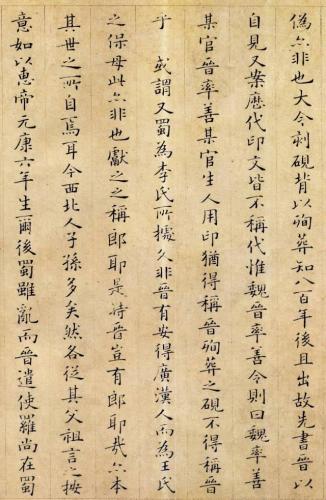 偽亦非也大令刻硯背以殉葬知八百年後且出故先書晉以
自見又案歷代印文皆不稱代惟魏晉率善令則曰魏率善
某官晉率善某官生人用印猶得稱晉殉葬之硯不得稱晉
乎 或謂又蜀為李氏所據久非晉有安得廣漢人而為王氏
之保母此亦非也獻之之稱郎耶是時晉豈有郎耶哉亦本
其世之所自焉耳今西北人子孫多矣然各從其父祖言之按
意如以恵帝元康六年生爾後蜀雖亂而晉遣使羅尚在蜀